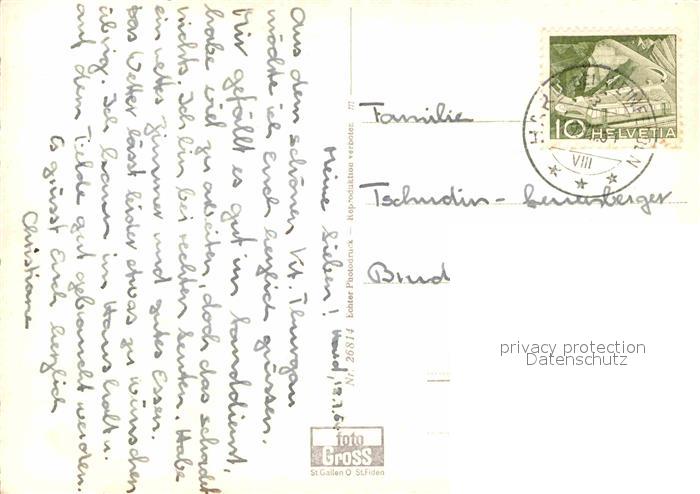 Meine Lieben! Hard, 18.7.6
Aus dem schönen Kt. Thurgau
möchte ich Euch herzlich grüssen.
Mir gefällt es gut im Landdienst,
habe viel zu arbeiten, doch das schadet
nichts. Ich bin bei rechten Leuten. Habe
ein nettes Zimmer und gutes Essen.
Das Wetter lässt leider etwas zu wünschen
übrig. Ich kann im Haushalt u.
auf dem Felde gut gebraucht werden.
Es grüsst Euch herzlich
Christiane
Nr. 26814 Echter Photodruck — Reproduktion verboten
foto
Gross
St Gallen O St. Fiden
Familie
Tschudin-
Brud
10 HELVETIA
HARD BEI WEINFELDEN
VIII
privacy protection
Datenschutz